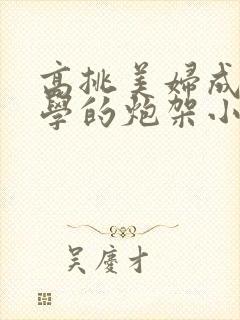 高挑美婦成
學的炮架小
吴慶才